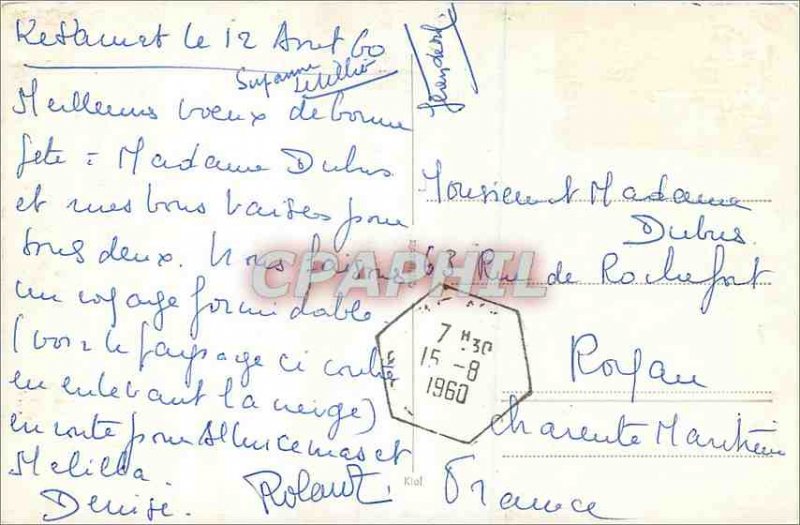 Ketama le 12 Aout 60
Suzanne
Letellier
Meilleurs voeux de bonne
fete = Madame Dubus
et mes bons baisers pour
tous deux. Nous faisons
un voyage formidable
(voir le paysage ci contre
en enlevant la neige)
en route pour Alhucemas et
Melilla.
Denise. Roland.
Monsieur et Madame
Dubus
63 Rue de Rochefort
Royan
Charente Maritime
France
CPAPHIL
7 H30
15 -8
1960